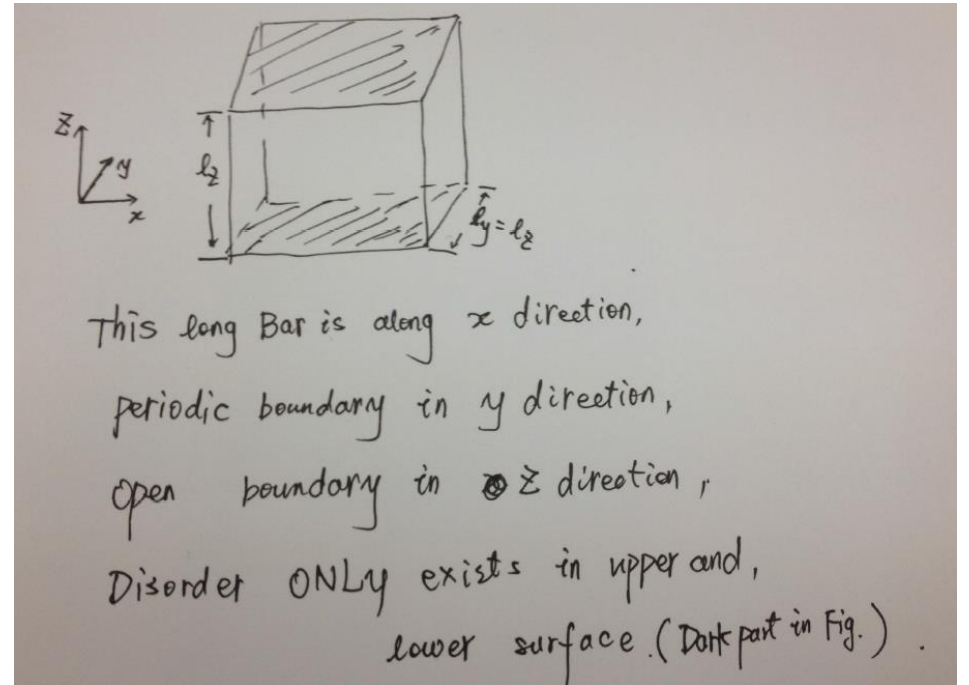 z
y
x
lz
ly = lz
This long Bar is along x direction,
periodic boundary in y direction,
open boundary in z direction,
Disorder ONLY exists in upper and,
lower surface. (Dark part in Fig.).